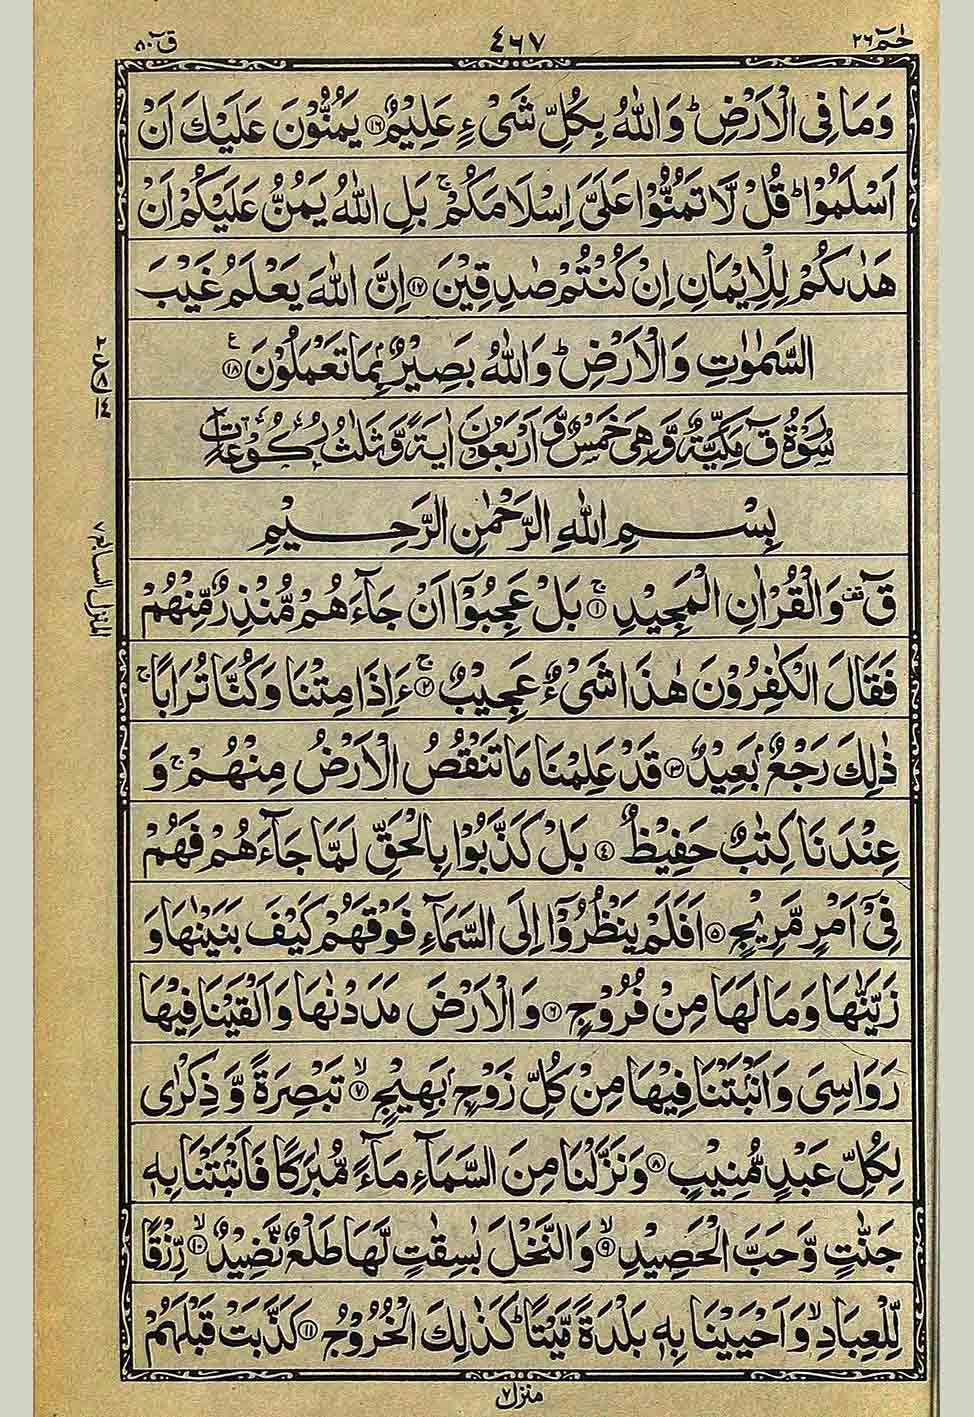 حٰمٓ ٢٦
٤٦٧
قٓ ٥٠
وَمَا فِی الْاَرْضِ ؕ وَاللّٰهُ بِكُلِّ شَیْءٍ عَلِیْمٌ ﴿١٦﴾ یَمُنُّوْنَ عَلَیْكَ اَنْ
اَسْلَمُوْا ؕ قُلْ لَّا تَمُنُّوْا عَلَیَّ اِسْلَامَكُمْ ۚ بَلِ اللّٰهُ یَمُنُّ عَلَیْكُمْ اَنْ
هَدٰىكُمْ لِلْاِیْمَانِ اِنْ كُنْتُمْ صٰدِقِیْنَ ﴿١٧﴾ اِنَّ اللّٰهَ یَعْلَمُ غَیْبَ
السَّمٰوٰتِ وَالْاَرْضِ ؕ وَاللّٰهُ بَصِیْرٌۢ بِمَا تَعْمَلُوْنَ ﴿١٨﴾ ع
سُوْرَةُ قٓ مَكِّیَّةٌ وَّهِیَ خَمْسٌ وَّ اَرْبَعُوْنَ اٰیَةً وَّثَلٰثُ رُكُوْعَاتٍ
بِسْمِ اللّٰهِ الرَّحْمٰنِ الرَّحِیْمِ
قٓ ۫ وَالْقُرْاٰنِ الْمَجِیْدِ ﴿١﴾ ۚ بَلْ عَجِبُوْۤا اَنْ جَآءَهُمْ مُّنْذِرٌ مِّنْهُمْ
فَقَالَ الْكٰفِرُوْنَ هٰذَا شَیْءٌ عَجِیْبٌ ﴿٢﴾ ۚ ءَاِذَا مِتْنَا وَكُنَّا تُرَابًا ۚ
ذٰلِكَ رَجْعٌۢ بَعِیْدٌ ﴿٣﴾ قَدْ عَلِمْنَا مَا تَنْقُصُ الْاَرْضُ مِنْهُمْ ۚ وَ
عِنْدَنَا كِتٰبٌ حَفِیْظٌ ﴿٤﴾ بَلْ كَذَّبُوْا بِالْحَقِّ لَمَّا جَآءَهُمْ فَهُمْ
فِیْۤ اَمْرٍ مَّرِیْجٍ ﴿٥﴾ اَفَلَمْ یَنْظُرُوْۤا اِلَی السَّمَآءِ فَوْقَهُمْ كَیْفَ بَنَیْنٰهَا وَ
زَیَّنّٰهَا وَمَا لَهَا مِنْ فُرُوْجٍ ﴿٦﴾ وَالْاَرْضَ مَدَدْنٰهَا وَاَلْقَیْنَا فِیْهَا
رَوَاسِیَ وَاَنْۢبَتْنَا فِیْهَا مِنْ كُلِّ زَوْجٍۭ بَهِیْجٍ ﴿٧﴾ ۙ تَبْصِرَةً وَّذِكْرٰی
لِكُلِّ عَبْدٍ مُّنِیْبٍ ﴿٨﴾ وَنَزَّلْنَا مِنَ السَّمَآءِ مَآءً مُّبٰرَكًا فَاَنْۢبَتْنَا بِهٖ
جَنّٰتٍ وَّحَبَّ الْحَصِیْدِ ﴿٩﴾ ۙ وَالنَّخْلَ بٰسِقٰتٍ لَّهَا طَلْعٌ نَّضِیْدٌ ﴿١٠﴾ ۙ رِّزْقًا
لِّلْعِبَادِ ۙ وَاَحْیَیْنَا بِهٖ بَلْدَةً مَّیْتًا ؕ كَذٰلِكَ الْخُرُوْجُ ﴿١١﴾ كَذَّبَتْ قَبْلَهُمْ
٢ ع ٨ ١٤
المنزل السابع ٧
منزل ٧